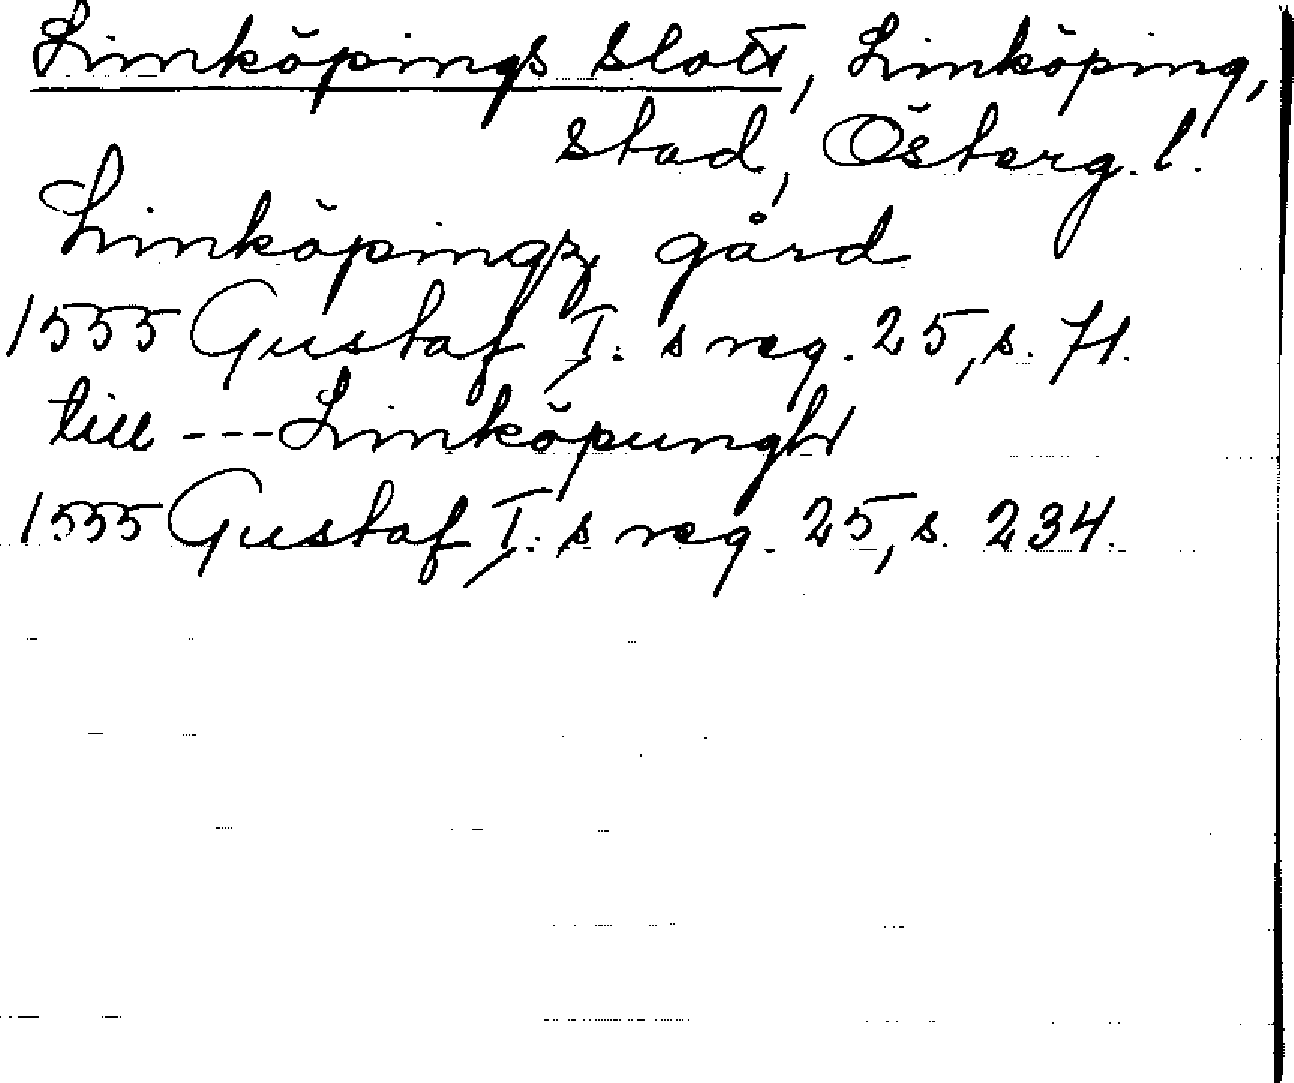 Linköpings slott, Linköping,
stad, Österg. l.
Linköpingz gård
1555 Gustaf I:s reg. 25, s. 71.
till --- Linköpungh
1555 Gustaf I:s reg. 25, s. 234.